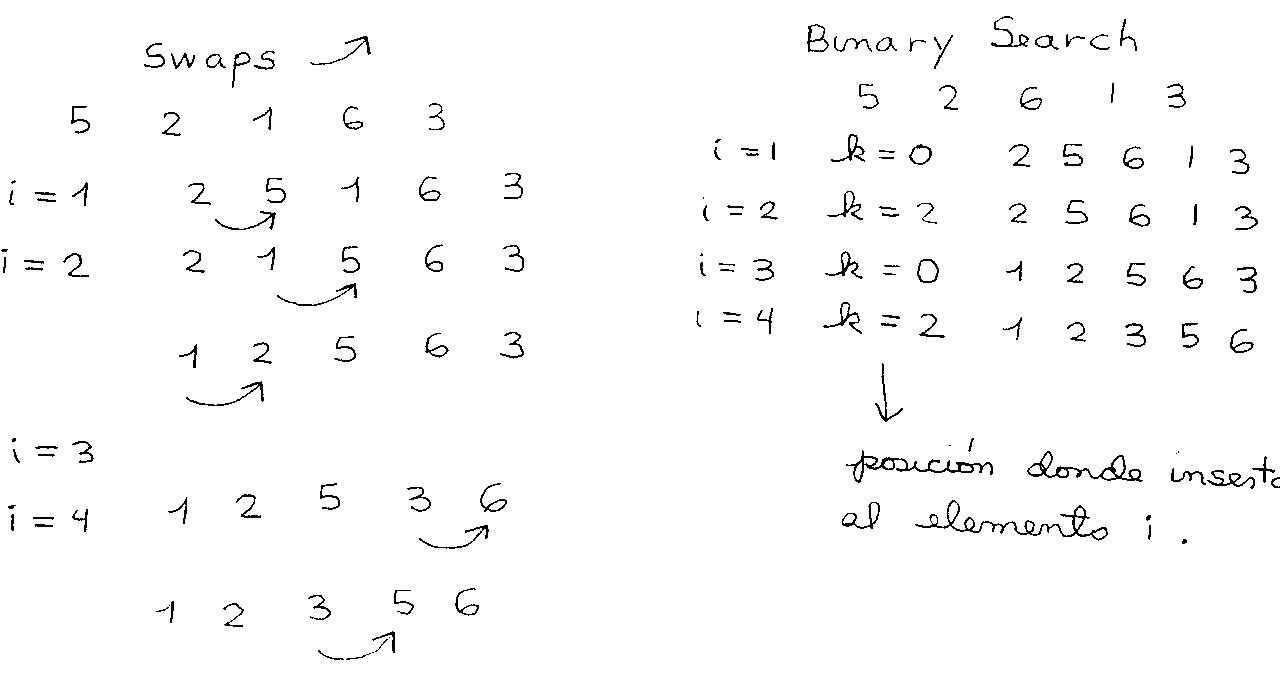 Swaps
5 2 1 6 3
i = 1 2 5 1 6 3
i = 2 2 1 5 6 3
1 2 5 6 3
i = 3
i = 4 1 2 5 3 6
1 2 3 5 6
Binary Search
5 2 6 1 3
i = 1 k = 0 2 5 6 1 3
i = 2 k = 2 2 5 6 1 3
i = 3 k = 0 1 2 5 6 3
i = 4 k = 2 1 2 3 5 6
posición donde inserto
al elemento i.